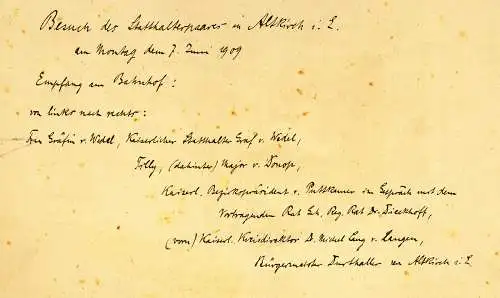 Besuch des Statthalterpaares in Altkirch i. E.
am Montag dem 7. Juni 1909
Empfang am Bahnhof:
von links nach rechts:
Frau Gräfin v. Wedel, Kaiserlicher Statthalter Graf v. Wedel,
Tilly, (dahinter) Major v. Donop,
Kaiserl. Bezirkspräsident v. Puttkamer im Gespräch mit dem
Vortragenden Rat Geh. Reg. Rat Dr. Dieckhoff,
(vorn) Kaiserl. Kreisdirektor D. Michel Lang v. Langen,
Bürgermeister Durthaller von Altkirch i. E.